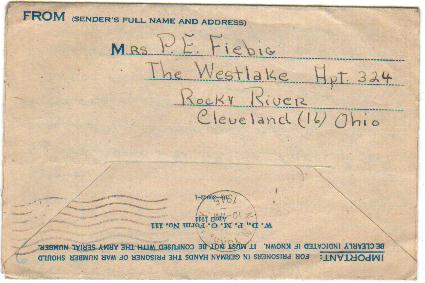 FROM (SENDER'S FULL NAME AND ADDRESS)
MRS P.E. Fiebig
The Westlake Hpt. 324
Rocky River
Cleveland (16) Ohio
W. D., P. M. G. Form No. 111
April 1944
IMPORTANT: FOR PRISONERS IN GERMAN HANDS THE PRISONER OF WAR NUMBER SHOULD
BE CLEARLY INDICATED IF KNOWN. IT MUST NOT BE CONFUSED WITH THE ARMY SERIAL NUMBER.
1945